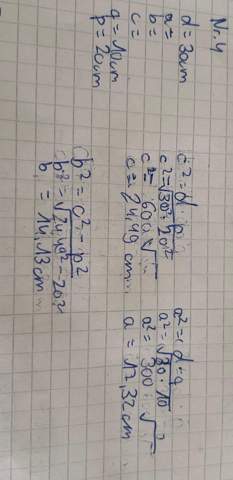 Nr. 4
d = 30cm
a =
b =
c =
q = 10cm
p = 20cm
c² = d · p
c² = √30 · 20
c² = 600 √
c = 24,49 cm
b² = c² - p²
b² = √24,49² - 20²
b = 14,13 cm
a² = d · q
a² = √30 · 10
a² = 300 √
a = 17,32 cm